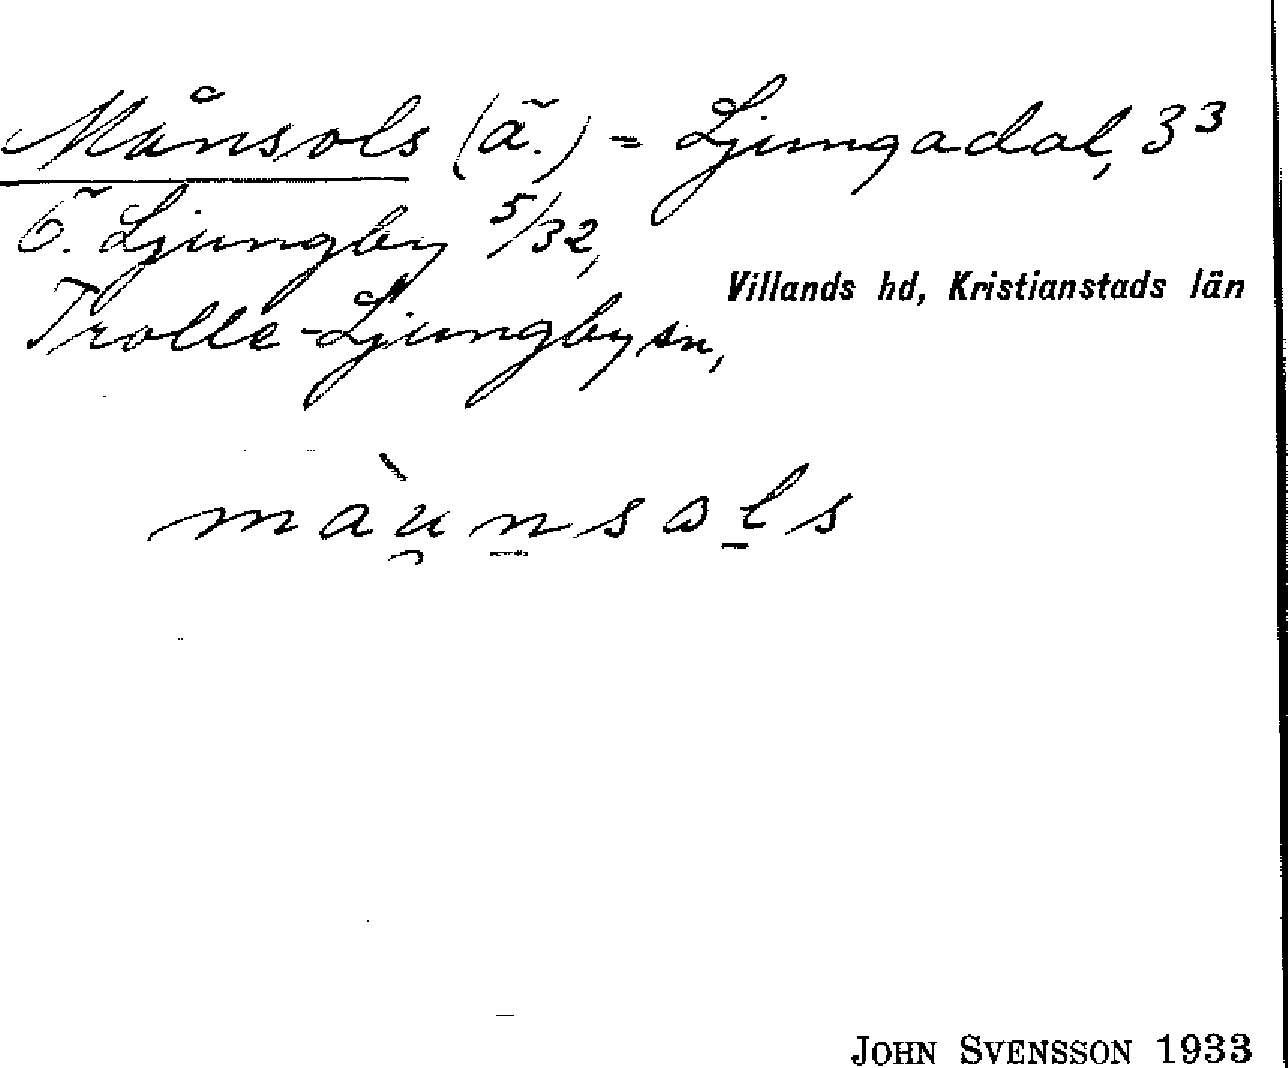 Månsols (ä.) = Ljungadal, 3³
Ö. Ljungby 5/32,
Villands hd, Kristianstads län
Trolle-Ljungby sn,
màu̯n̲sol̲s
JOHN SVENSSON 1933